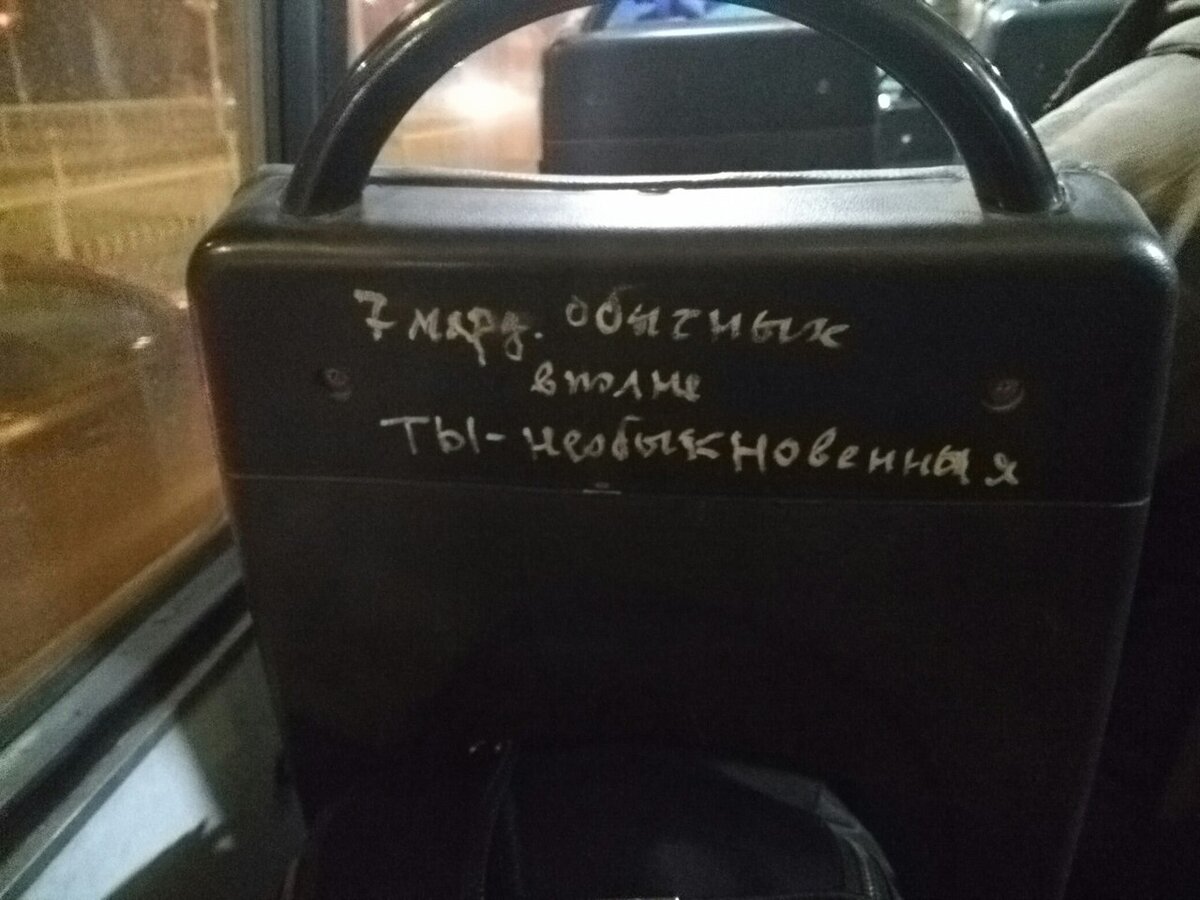 7 млрд. обычных
вполне
ты-необыкновенная